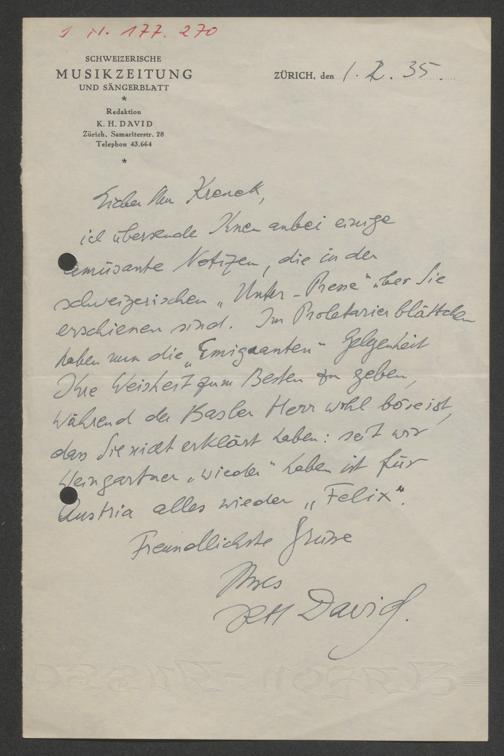 J. N. 177.270
SCHWEIZERISCHE
MUSIKZEITUNG
UND SÄNGERBLATT
Redaktion
K. H. DAVID
Zürich, Samariterstr. 28
Telephon 43.664
ZÜRICH, den 1. 2. 35.
Lieber Herr Krenek,
ich übersende Ihnen anbei einige
amüsante Notizen, die in der
schweizerischen „Unter-Presse" über Sie
erschienen sind. Im Proletarierblättchen
haben nun die „Emigranten" Gelgenheit
Ihre Weisheit zum Besten zu geben,
während der Basler Herr wohl böse ist,
dass Sie nicht erklärt haben: seit wir
Weingartner „wieder" haben ist für
Austria alles wieder „Felix".
Freundlichste Grüsse
Ihres
KH David.